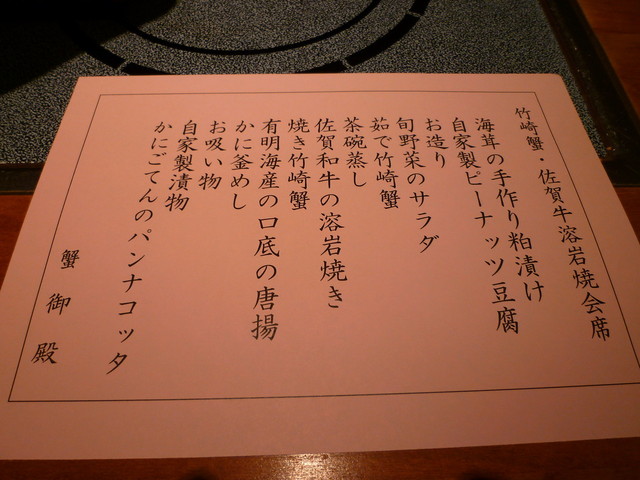 竹崎蟹・佐賀牛溶岩焼会席
海茸の手作り粕漬け
自家製ピーナッツ豆腐
お造り
旬野菜のサラダ
茹で竹崎蟹
茶碗蒸し
佐賀和牛の溶岩焼き
焼き竹崎蟹
有明海産の口底の唐揚
かに釜めし
お吸い物
自家製漬物
かにごてんのパンナコッタ
蟹御殿